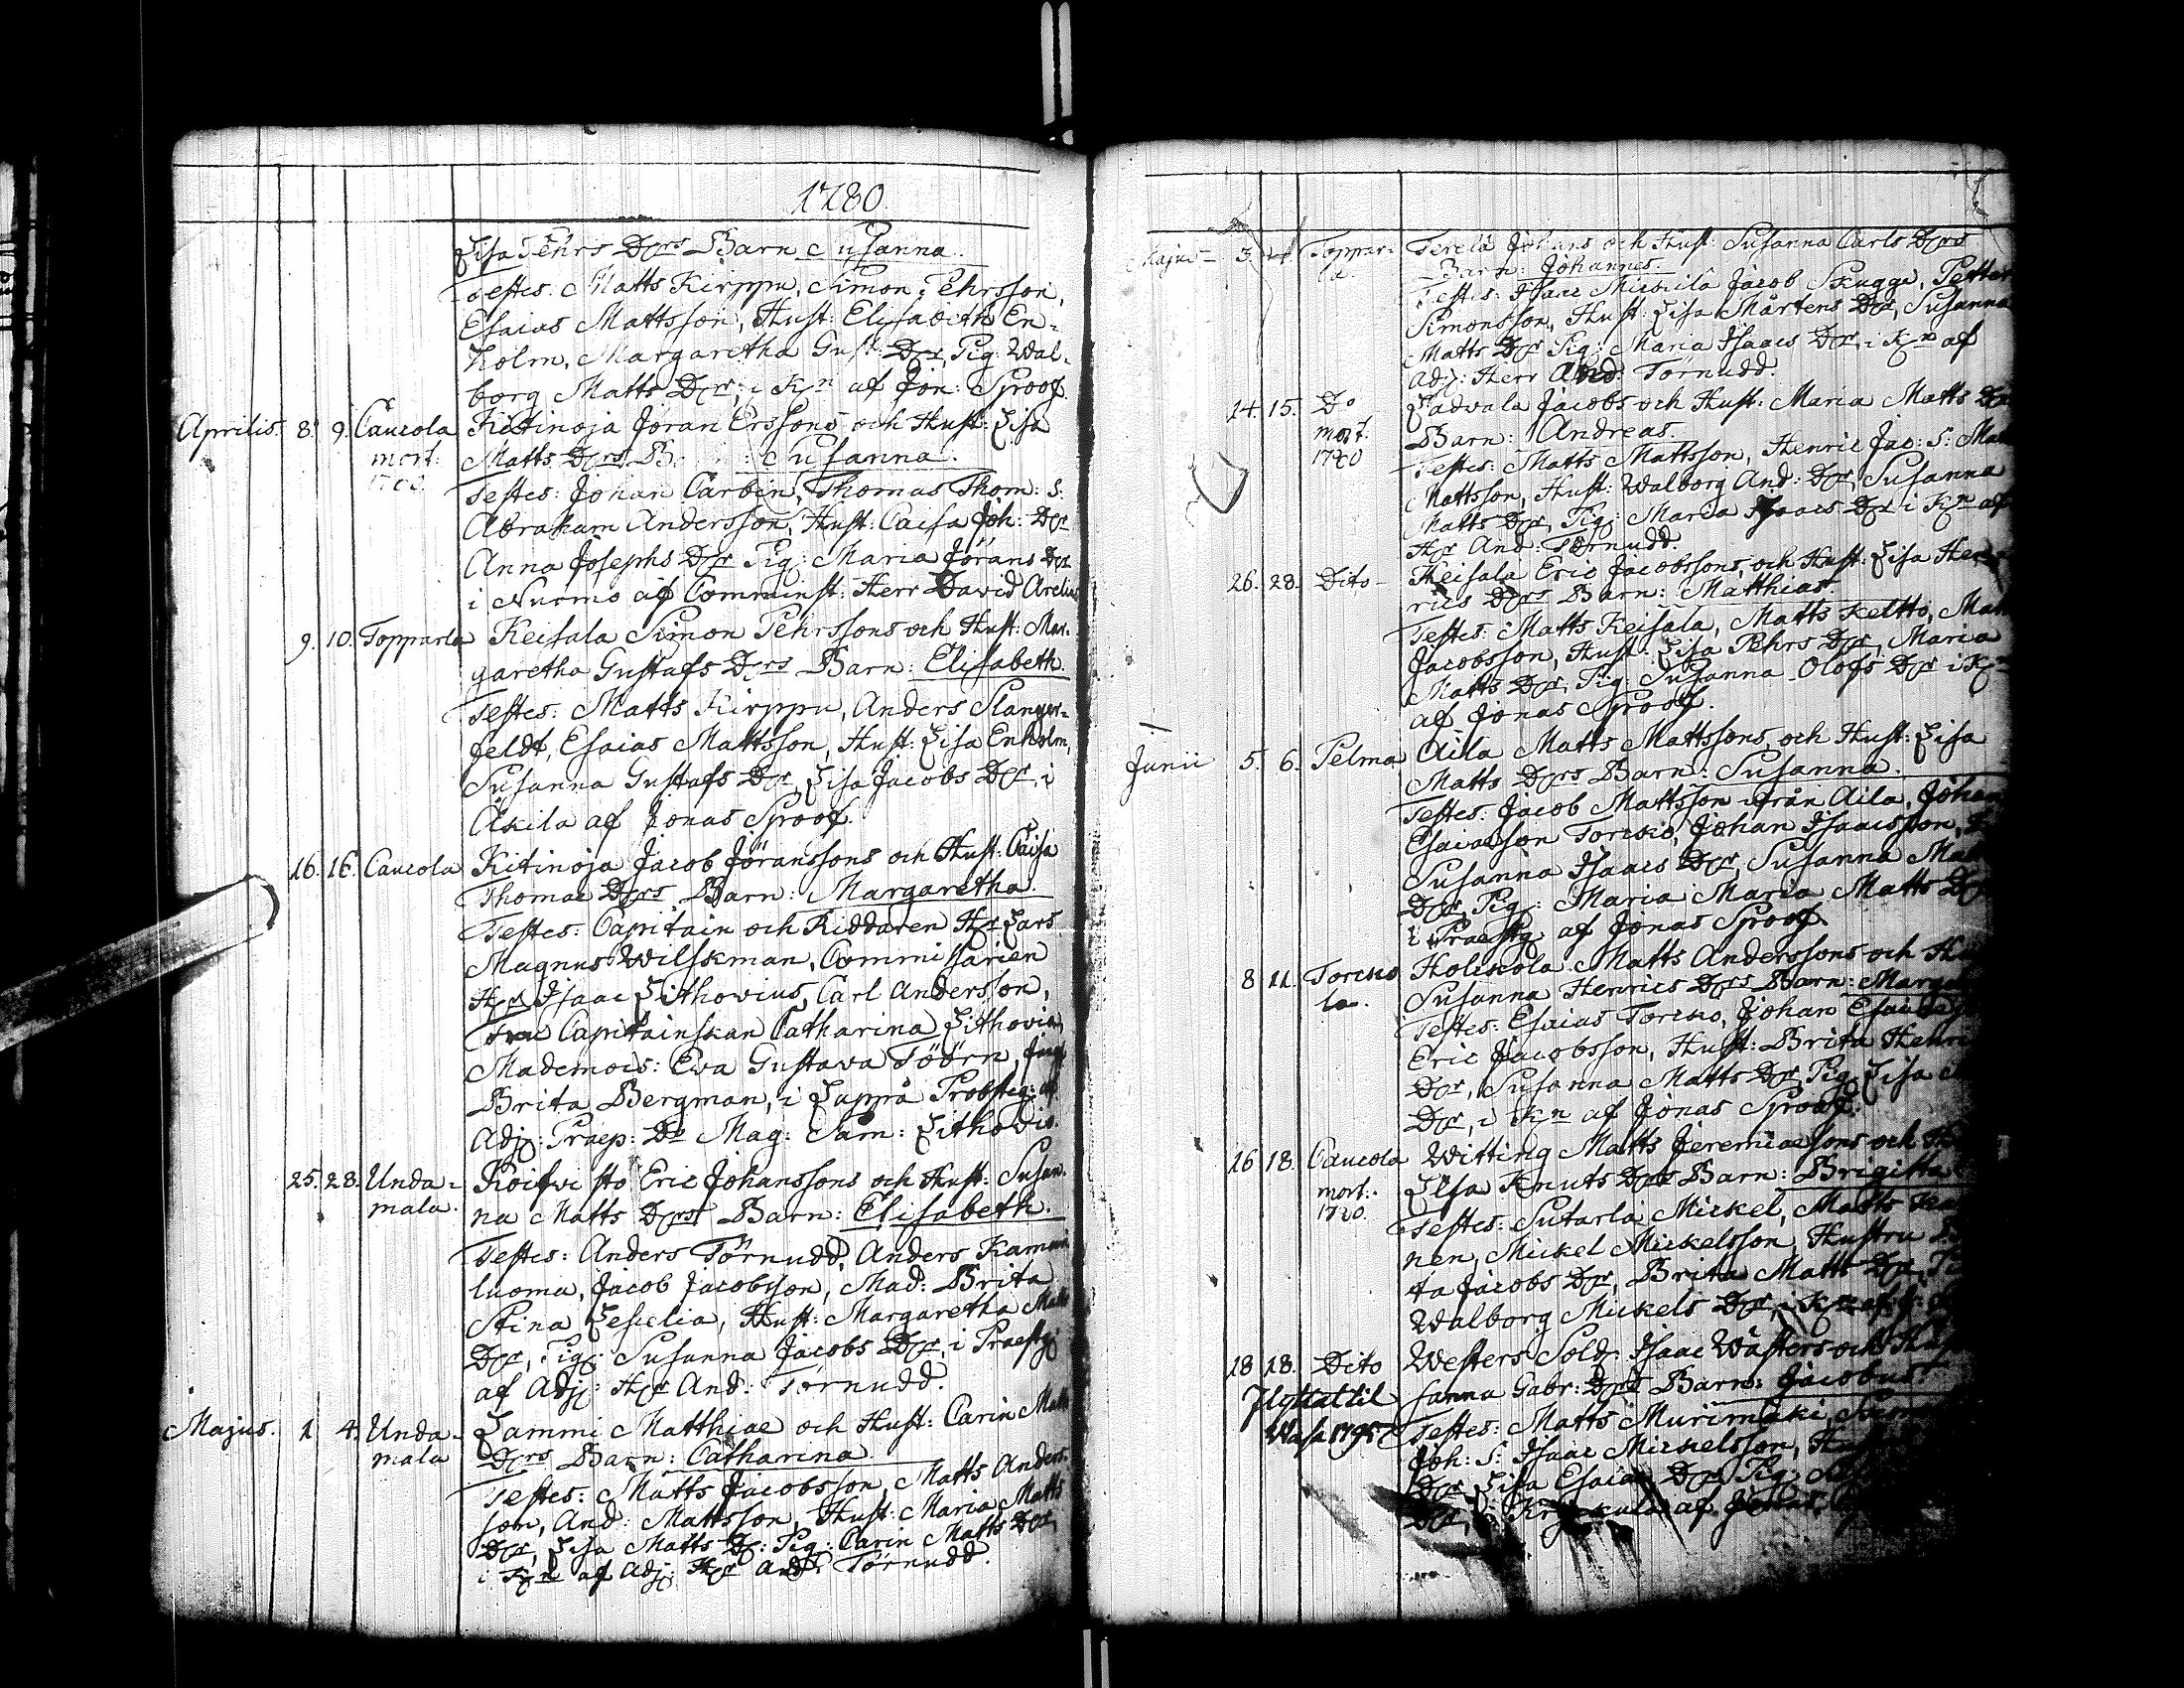 1780.
Lisa Pehrs Drs Barn Susanna.
Testes: Matts Kirppu, Simon Pehrsson,
Esaias Mattsson, Hust: Elisabeth En-
holm, Margaretha Gust: Dr, Pig: Wal-
borg Matts Dr, i Kn af Jon: Sproof.
Aprilis. 8. 9. Caucola Kitinoja Jöran Erssons och Hust: Lisa
mort: Matts Drs B: Susanna.
Testes: Johan Carben, Thomas Thom: S:
Abraham Andersson, Hust: Caisa Joh: Dr
Anna Josephs Dr Pig: Maria Jörans Dr
i Nurmo af Comminst: Herr David Arelius
9. 10. Topparla Keisala Simon Pehrssons och Hust: Mar-
garetha Gustafs Drs Barn: Elisabeth.
Testes: Matts Kirppu, Anders Slanger-
feldt, Esaias Mattsson, Hust: Lisa Enholm,
Susanna Gustafs Dr, Lisa Jacobs Dr, i
Äkila af Jonas Sproof.
16. 16. Caucola Kitinoja Jacob Jöranssons och Hust: Caisa
Thomae Drs Barn: Margaretha.
Testes: Capitain och Riddaren Hr Lars
Magnus Wilskman, Commissarien
Hr Isaac Lithovius, Carl Andersson,
Fru Capitainskan Catharina Lithovia,
Mademois: Eva Gustava Töörn, Jungf
Brita Bergman, i Lappå Probstg: af
Adj: Praep: Do Mag: Sam: Lithovio.
25. 28. Unda- Koifvisto Eric Johanssons och Hust: Susan-
mala. na Matts Drs Barn: Elisabeth.
Testes: Anders Törnudd, Anders Kamari
luoma, Jacob Jacobsson, Mad: Brita
Stina Peselia, Hust: Margaretha Matts
Dr, Pig: Susanna Jacobs Dr, i Praestg:
af Adj: Hr And: Törnudd.
Majus. 1. 4. Unda- Lammi Matthiae och Hust: Carin Matts
mala Drs Barn: Catharina.
Testes: Matts Jacobsson, Matts Anders-
son, And: Mattsson, Hust: Maria Matts
Dr, Lisa Matts D: Pig: Carin Matts Dr,
i Kn af Adj: Hr And: Törnudd.
Majus 3. 4. Toppar- Terela Johans och Hust: Susanna Carls Drs
la. Barn: Johannes.
Testes: Isaac Mickilä Jacob Skugge, Petter
Simonsson, Hust: Lisa Mårtens Dr, Susanna
Matts Dr Pig: Maria Isaacs Dr, i Kn af
Adj: Herr And: Törnudd.
14. 15. Do Ladvala Jacobs och Hust: Maria Matts Drs
mort: Barn: Andreas.
1780 Testes: Matts Mattsson, Henric Jac: S: Matts
Mattsson, Hust: Walborg And: Dr, Susanna
Matts Dr, Pig: Maria Isaacs Dr i Kn af
Hr And: Törnudd.
26. 28. Dito Keisala Eric Jacobssons, och Hust: Lisa Hen-
rics Drs Barn: Matthias.
Testes: Matts Keisala, Matts Keltto, Matts
Jacobsson, Hust: Lisa Pehrs Dr, Maria
Matts Dr, Pig: Susanna Olofs Dr i Kn
af Jonas Sproof.
Junii 5. 6. Pelma Aila Matts Mattssons, och Hust: Lisa
Matts Drs Barn: Susanna.
Testes: Jacob Mattsson ifrån Aila, Johan
Esaiaesson Torcko, Johan Isaacsson,
Susanna Isaacs Dr, Susanna Matts
Dr, Pig: Maria Maria Matts Dr
i Praestg: af Jonas Sproof.
8 11. Torcko Holckola Matts Anderssons och
la. Susanna Henrics Drs Barn:
Testes: Esaias Torcko, Johan
Eric Jacobsson, Hust: Brita
Dr, Susanna Matts Dr Pig: Lisa
Dr, i Kn af Jonas Sproof.
16 18. Caucola Witting Matts Jeremiaesons och
mort: Lisa Knuts Drs Barn: Brigitta
1780. Testes: Sutarla Mickel, Matts
nen, Mickel Mickelsson, Hustru
ta Jacobs Dr, Brita Matts Dr,
Walborg Mickels Dr, i Kn af
18 18. Dito Westers Sold: Isaac Wästers och
Flyttat til sanna Gabr: Drs Barn: Jacobus
Wasa 1795 Testes: Matts Murimäki,
Joh: S: Isaac Mickelsson,
Dr Lisa Esaiae Dr Pig:
Dr, i af Jonas